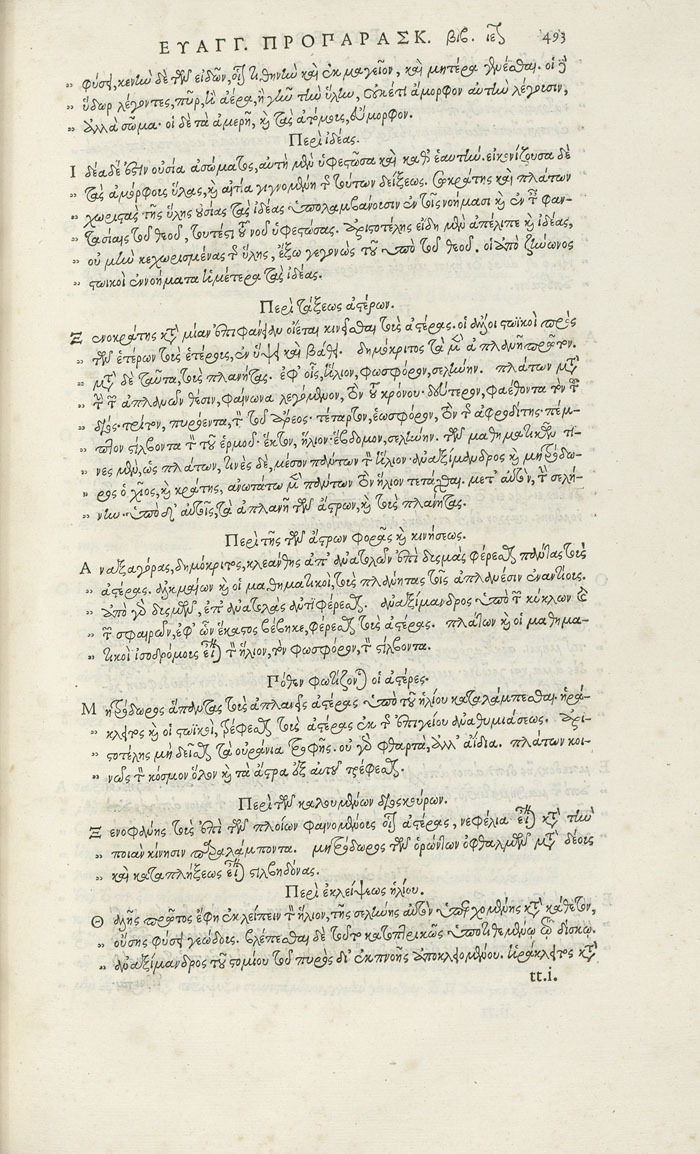 ΕΥΑΓΓ. ΠΡΟΠΑΡΑΣΚ. βιβ. ιε 493
φύσιν, κενὴν δὲ τῶν εἰδῶν, οἷον τιθήνην καὶ ἐκμαγεῖον, καὶ μητέρα γίνεσθαι. οἱ δὲ
ὕδωρ λέγοντες, πῦρ, ἢ ἀέρα, ἢ γῆν τὴν ὕλην, οὐκέτι ἄμορφον αὐτὴν λέγουσιν,
ἀλλὰ σῶμα. οἱ δὲ τὰ ἀμερῆ, καὶ τὰς ἀτόμους, ἄμορφον.
Περὶ ἰδέας.
Ι δέα δέ ἐστιν οὐσία ἀσώματος, αὐτὴ μὲν ὑφεστῶσα καὶ καθ' ἑαυτήν. εἰκονίζουσα δὲ
τὰς ἀμόρφους ὕλας, καὶ αἰτία γιγνομένη τῆς τούτων δείξεως. Σωκράτης καὶ πλάτων
χωριστὰς τῆς ὕλης οὐσίας τὰς ἰδέας ὑπολαμβάνουσιν ἐν τοῖς νοήμασι καὶ ἐν ταῖς φαν-
τασίαις τοῦ θεοῦ, τουτέστι τοῦ νοῦ ὑφεστώσας. Ἀριστοτέλης εἴδη μὲν ἀπέλιπε καὶ ἰδέας,
οὐ μὴν κεχωρισμένας τῆς ὕλης, ἔξω γεγονὼς τοῦ ὑπὸ τοῦ θεοῦ. οἱ ἀπὸ ζήνωνος
στωικοὶ ἐννοήματα ἡμέτερα τὰς ἰδέας.
Περὶ τάξεως ἀστέρων.
Ξ ενοκράτης κατὰ μίαν ἐπιφάνειαν οἴεται κινεῖσθαι τοὺς ἀστέρας. οἱ δ' ἄλλοι στωικοὶ πρὸς
τῶν ἑτέρων τοὺς ἑτέρους, ἐν ὕψει καὶ βάθει. δημόκριτος τὰ μὲν ἀπλανῆ πρῶτον.
μετὰ δὲ ταῦτα, τοὺς πλανήτας. ἐφ' οἷς, ἥλιον, φωσφόρον, σελήνην. πλάτων μετὰ
τὴν τῶν ἀπλανῶν θέσιν, φαίνωνα λεγόμενον, τὸν τοῦ κρόνου. δεύτερον, φαέθοντα τὸν τοῦ
διός. τρίτον, πυρόεντα, τὸν τοῦ ἄρεος. τέταρτον, ἑωσφόρον, τὸν τῆς ἀφροδίτης. πέμ-
πτον στίλβοντα τὸν τοῦ ἑρμοῦ. ἕκτον, ἥλιον. ἕβδομον, σελήνην. τῶν μαθηματικῶν τι-
νὲς μὲν, ὡς πλάτων, τινὲς δὲ, μέσον πάντων τὸν ἥλιον. ἀναξίμανδρος καὶ μητρόδω-
ρος ὁ χῖος, καὶ κράτης, ἀνωτάτω μὲν πάντων τὸν ἥλιον τετάχθαι. μετ' αὐτὸν, τὴν σελή-
νην. ὑπὸ δ' αὐτοῖς, τὰ ἀπλανῆ τῶν ἄστρων, καὶ τοὺς πλανήτας.
Περὶ τῆς τῶν ἄστρων φορᾶς καὶ κινήσεως.
Α ναξαγόρας, δημόκριτος, κλεάνθης ἀπ' ἀνατολῶν ἐπὶ δυσμὰς φέρεσθαι πάντας τοὺς
ἀστέρας. ἀλκμαίων καὶ οἱ μαθηματικοὶ, τοὺς πλάνητας τοῖς ἀπλανέσιν ἐναντίους.
ἀπὸ γὰρ δυσμῶν, ἐπ' ἀνατολὰς ἀντιφέρεσθαι. ἀναξίμανδρος ὑπὸ τῶν κύκλων καὶ
τῶν σφαιρῶν, ἐφ' ὧν ἕκαστος βέβηκε, φέρεσθαι τοὺς ἀστέρας. πλάτων καὶ οἱ μαθημα-
τικοὶ ἰσοδρόμους εἶναι τὸν ἥλιον, τὸν φωσφόρον, τὸν στίλβοντα.
Πόθεν φωτίζονται οἱ ἀστέρες.
Μ ητρόδωρος ἅπαντας τοὺς ἀπλανεῖς ἀστέρας ὑπὸ τοῦ ἡλίου καταλάμπεσθαι. ἡρά-
κλειτος καὶ οἱ στωικοὶ, τρέφεσθαι τοὺς ἀστέρας ἐκ τῆς ἐπιγείου ἀναθυμιάσεως. Ἀρι-
στοτέλης μὴ δεῖσθαι τὰ οὐράνια τροφῆς. οὐ γὰρ φθαρτὰ, ἀλλ' ἀΐδια. πλάτων κοι-
νῶς τὸν κόσμον ὅλον καὶ τὰ ἄστρα ἐξ αὐτοῦ τρέφεσθαι.
Περὶ τῶν καλουμένων διοσκούρων.
Ξ ενοφάνης τοὺς ἐπὶ τῶν πλοίων φαινομένους οἷον ἀστέρας, νεφέλια εἶναι κατὰ τὴν
ποιὰν κίνησιν παραλάμποντα. μητρόδωρος τῶν ὁρώντων ὀφθαλμῶν μετὰ δέους
καὶ καταπλήξεως εἶναι στιλβηδόνας.
Περὶ ἐκλείψεως ἡλίου.
Θ αλῆς πρῶτος ἔφη ἐκλείπειν τὸν ἥλιον, τῆς σελήνης αὐτὸν ὑπερχομένης κατὰ κάθετον,
οὔσης φύσει γεώδους. βλέπεσθαι δὲ τοῦτο κατοπτρικῶς ὑποτιθεμένῳ τῷ δίσκῳ.
ἀναξίμανδρος τοῦ στομίου τοῦ πυρὸς δι' ἐκπνοῆς ἀποκλειομένου. ἡράκλειτος κατὰ
tt.i.